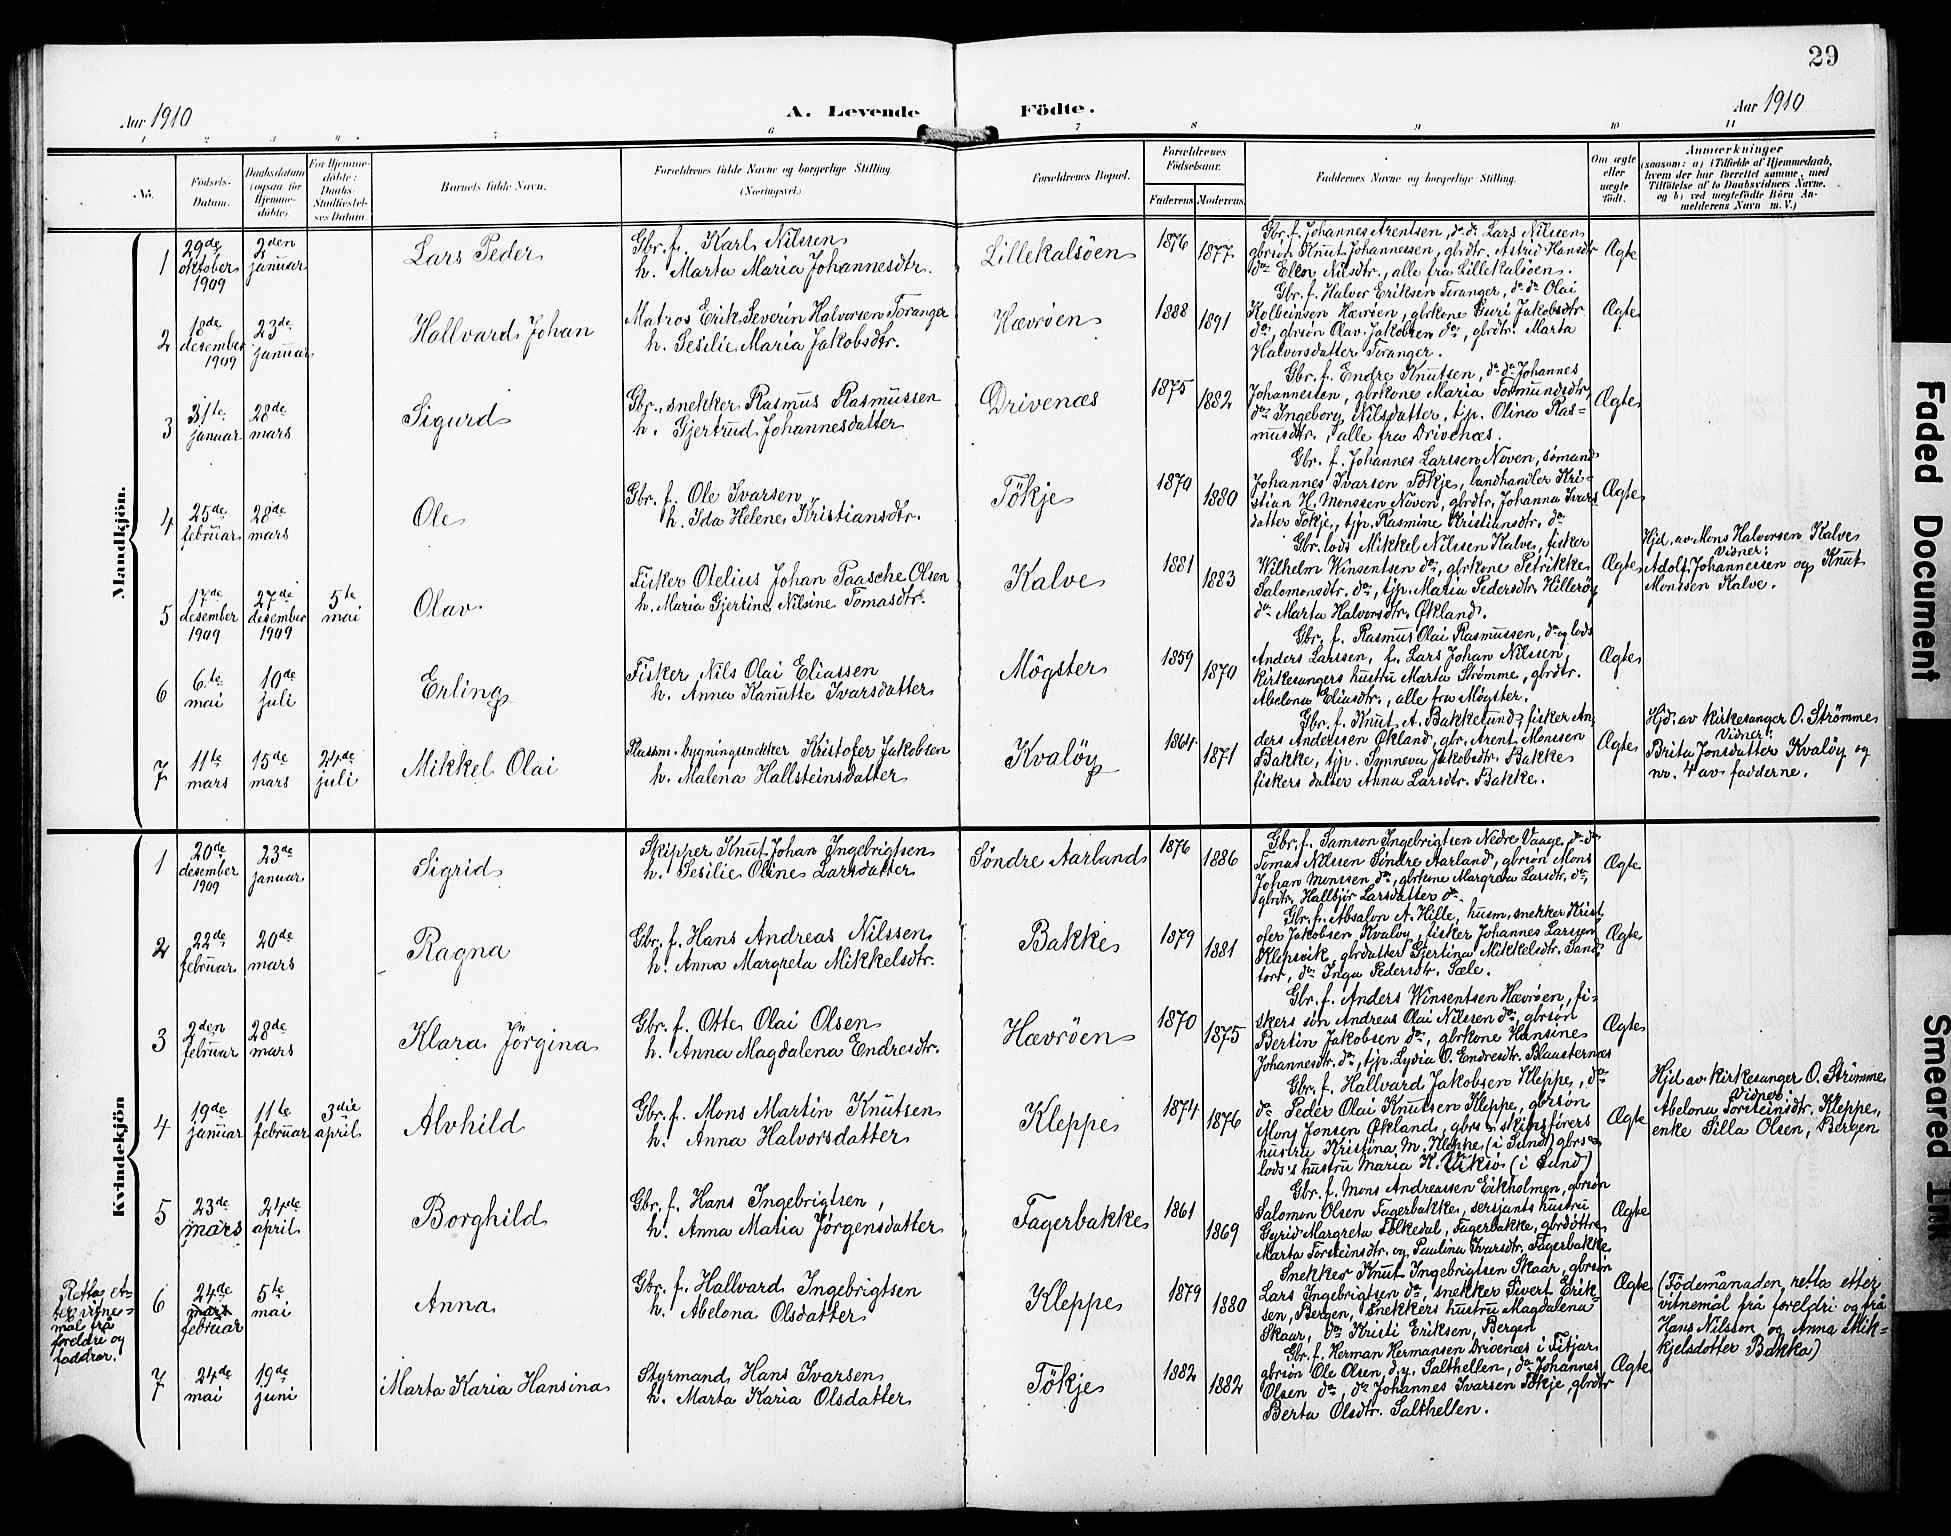 29
Aar 1910
A. Levende Födte.
Aar 1910
1 2 3 4 5 6 7 8 9 10 11
No.
Födsels-
Datum.
Daabsdatum
(ogsaa for
Hjemme-
döbte).
For Hjemme-
döbte:
Daabs-
Stadfæstel-
ses Datum.
Barnets fulde Navn.
Forældrenes fulde Navne og borgerlige Stilling.
(Næringsvei.)
Forældrenes Bopæl.
Forældrenes
Födselsaar.
Faderens
Moderens
Faddernes Navne og borgerlige Stilling.
Om ægte
eller
uægte
født.
Anmærkninger
(saasom: a) i Tilfælde af Hjemmedaab,
hvem der har forrettet samme, med
Tilföielse af to Daabsvidners Navne,
og b) ved uægtefödte Börn An-
melderens Navn m. V.)
Mandkjön.
1
29de
oktober
1909
2den
januar
Lars Peder
Gbr. f. Karl Nilssen
h. Marta Maria Johannesdtr.
Lillekalsöen
1876
1877
Gbr. f. Johannes Arentsen, do. do. Lars Nilssen
gbrsön Knut Johannessen, gbrdtr. Astrid Hansdtr
do. Ellen Nilsdtr., alle fra Lillekalsöen.
Ægte
2
18de
desember
1909
23de
januar
Hallvard Johan
Matros Erik Severin Halvorsen Toranger
h. Sesilie Maria Jakobsdtr.
Hævröen
1888
1891
Gbr. f. Halvor Eriksen Toranger, do. do. Olai
Kolbeinsen Hævröen, gbrkone Guri Jakobsdtr
do., gbrsön Olav Jakobsen do., gbrdtr. Marta
Halvorsdatter Toranger.
Ægte
3
31te
januar
28de
mars
Sigurd
Gbr., snekker Rasmus Rasmussen
h. Gjertrud Johannesdatter
Drivenæs
1875
1882
Gbr. f. Endre Knutsen, do. do. Johannes
Johannessen, gbrkone Maria Tormundsdtr,
do. Ingeborg Nilsdatter, tjp. Olina Ras-
musdtr., alle fra Drivenæs.
Ægte
4
25de
februar
28de
mars
Ole
Gbr. f. Ole Ivarsen
h. Ida Helene Kristiansdtr.
Tökje
1870
1880
Gbr. f. Johannes Larssen Noven, sömand
Johannes Ivarsen Tökje, landhandler Kri-
stian H. Monssen Noven, gbrdtr. Johanna Ivars
datter Tökje, tjp. Rasmine Kristiansdtr. do.
Ægte
5
17de
desember
1909
27de
desember
1909
5te
mai
Olav
Fisker Otelius Johan Paasche Olsen
h. Maria Gjertine Nilsine Tomasdtr.
Kalve
1881
1883
Gbr. lods Mikkel Nilssen Kalve, fisker
Wilhelm Winsentsen do., gbrkone Petrikke
Salomonsdtr. do., tjp. Maria Pedersdtr. Hilleröy
do. Marta Halvorsdtr. Økland.
Ægte
Hjd. av Mons Halvorsen Kalve
Vidner:
Adolf Johannessen og Knut
Monssen Kalve.
6
6te
mai
10de
juli
Erling
Fisker Nils Olai Eliassen
h. Anna Kanutte Ivarsdatter
Mögster
1859
1870
Gbr. f. Rasmus Olai Rasmussen, do. og lods
Anders Larssen, f. Lars Johan Nilssen,
kirkesangers hustru Marta Strømme, gbrdtr.
Abelona Eliasdtr., alle fra Møgster.
Ægte
7
11te
mars
15de
mars
24de
juli
Mikkel Olai
Plassm. bygningssnekker Kristofer Jakobsen
h. Malena Hallsteinsdatter
Kvalöy
1864
1871
Gbr. f. Knut A. Bakkesund, fisker An-
ders Anderssen Økland, gbr. Arent Monssen
Bakke, tjp. Synneva Jakobsdtr. Bakke
fiskers datter Anna Larsdtr. Bakke.
Ægte
Hjd. av kirkesanger O. Strömme
Vidner:
Brita Jonsdatter Kvalöy og
nr. 4 av fadderne.
Kvindekjön
1
20de
desember
1909
23de
januar
Sigrid
Skipper Knut Johan Ingebrigtsen
h. Sesilie Oline Larsdatter
Söndre Aarland
1876
1886
Gbr. f. Samson Ingebrigtsen Nedre Vaage, do. do.
Tomas Nilssen Söndre Aarland, gbrsön Mons
Johan Monssen do., gbrkone Margreta Larsdtr. do.,
gbrdtr. Hallbjör Larsdatter do.
Ægte
2
22de
februar
20de
mars
Ragna
Gbr. f. Hans Andreas Nilssen
h. Anna Margreta Mikkelsdtr.
Bakke
1879
1881
Gbr. f. Absalon A. Hille, husm. snekker Krist
ofer Jakobsen Kvalöy, fisker Johannes Larssen
Klepsvik, gbrdatter Gjertina Mikkelsdtr. Sand
torv, do. Inga Pedersdtr. Sæle.
Ægte
3
2den
februar
28de
mars
Klara Jörgina
Gbr. f. Otte Olai Olsen
h. Anna Magdalena Endresdtr.
Hævröen
1870
1875
Gbr. f. Anders Winsentsen Hævröen, fi-
skers sön Andreas Olai Nilssen do., gbrsön
Bertin Jakobsen do., gbrkone Hansine
Johannesdtr. do., tjp. Lydia O. Endresdtr. Blausternæs
Ægte
4
19de
januar
11te
februar
3die
april
Alvhild
Gbr. f. Mons Martin Knutsen
h. Anna Halvorsdatter
Kleppe
1874
1876
Gbr. f. Hallvard Jakobsen Kleppe, do.
do. Peder Olai Knutsen Kleppe, gbrsön
Mons Jonsen Økland, gbrs og skibsförers
hustru Kristina M. Kleppe (i Sund) gbrs og
lods's hustru Maria K. Viksö (i Sund)
Ægte
Hjd av kirkesanger O. Strömme
Vidner
Abelona Torsteinsdtr. Kleppe,
enke Silla Olsen, Bergen
5
23de
mars
24de
april
Borghild
Gbr. f. Hans Ingebrigtsen,
h. Anna Maria Jörgensdatter
Fagerbakke
1861
1869
Gbr. f. Mons Andreassen Eikholmen, gbrsön
Salomon Olsen Fagerbakke, sersjants hustru
Gyrid Margreta Folkedal, Fagerbakke, gbrdöttre
Marta Torsteinsdtr. og Paulina Ivarsdtr. Fagerbakke
Ægte
Retta et-
ter vitne-
mål frå
foreldri og
faddrar.
6
24de
mars
februar
5te
mai
Anna
Gbr. f. Hallvard Ingebrigtsen
h. Abelona Olsdatter
Kleppe
1879
1880
Snekker Knut Ingebrigtsen Skaar, gbrsön
Lars Ingebrigtsen do., snekker Sivert Erik-
sen, Bergen, snekkers hustru Magdalena
Skaar, do. Kristi Eriksen, Bergen
Ægte
(Födemånaden retta etter
vitnemål frå foreldri og frå
Hans Nilsson og Anna Mik-
kjelsdotter Bakka)
7
24de
mai
19de
juni
Marta Karia Hansina
Styrmand Hans Ivarsen
h. Marta Karia Olsdatter
Tökje
1882
1882
Gbr. f. Herman Hermansen Drivenæs i Fitjar
gbrsön Ole Olsen, d.y. Salthellen, do. Johannes
Olsen do., do. Johannes Ivarsen Tökje, gbrdtr
Berta Olsdtr. Salthellen.
Ægte
Faded Document
Smeared Ink